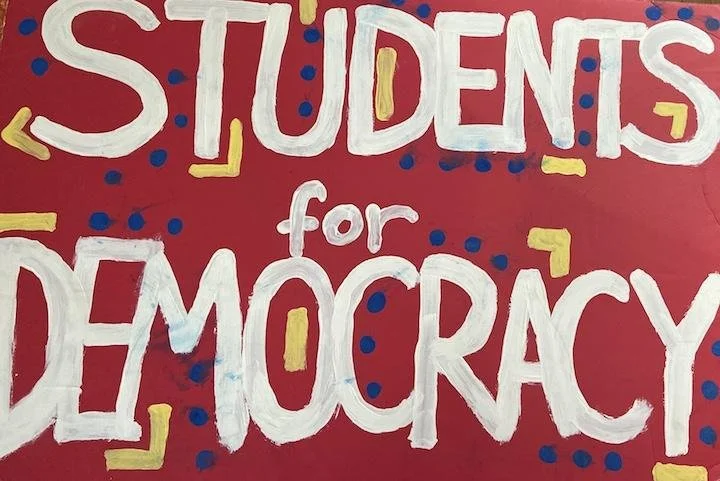 STUDENTS
for
DEMOCRACY